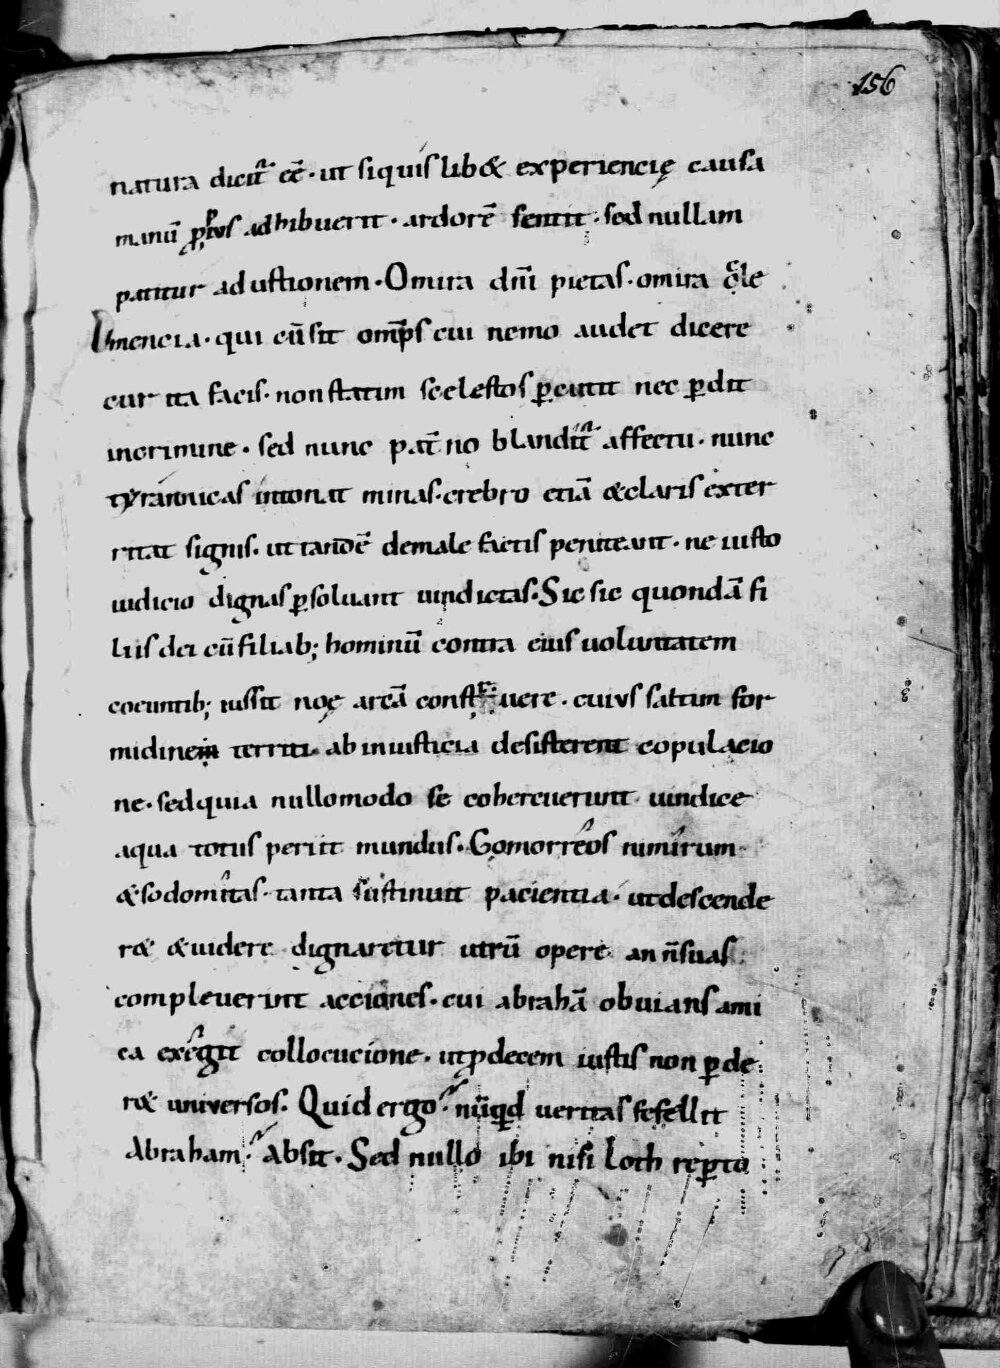 156
natura dicit᷑ eē· ut siquis lib& experiencię causa
manū ꝓpius adhibuerit· ardorē sentit· sed nullam
patitur adustionem· Omira dn̄i pietas· omira
mencia· qui cū sit omp̄s cui nemo audet dicere
cur ita facis· non statim scelestos ꝑcutit nec ꝑdit
incrimine· sed nunc pat̄no blandit᷑ affectu· nunc
tyrannicas intonat minas· crebro etiā &claris exter
ritat signis· ut tandē demale factis peniteant· ne iusto
iudicio dignas ꝑsoluant uindictas· Sic sic quondā fi
liis dei cū filiab; hominū contra eius uoluntatem
coeuntib; iussit noę arcā construere· cuius saltim for
midinem territi ab iniusticia desisterent copulacio
ne· sedquia nullomodo se cohercuerunt uindice
aqua totus periit mundus· Gomorreos nimirum
&sodomitas· tanta sustinuit pacientia· utdescende
r& &uidere dignaretur utrū opere an n̄ suas
compleuerint acciones· cui abrahā obuians ami
ca exegit collocucione· utꝓdecem iustis non ꝑde
r& universos. Quid ergo? nūqͥd ueritas fefellit
Abraham? Absit· Sed nullo ibi nisi loth reꝑto